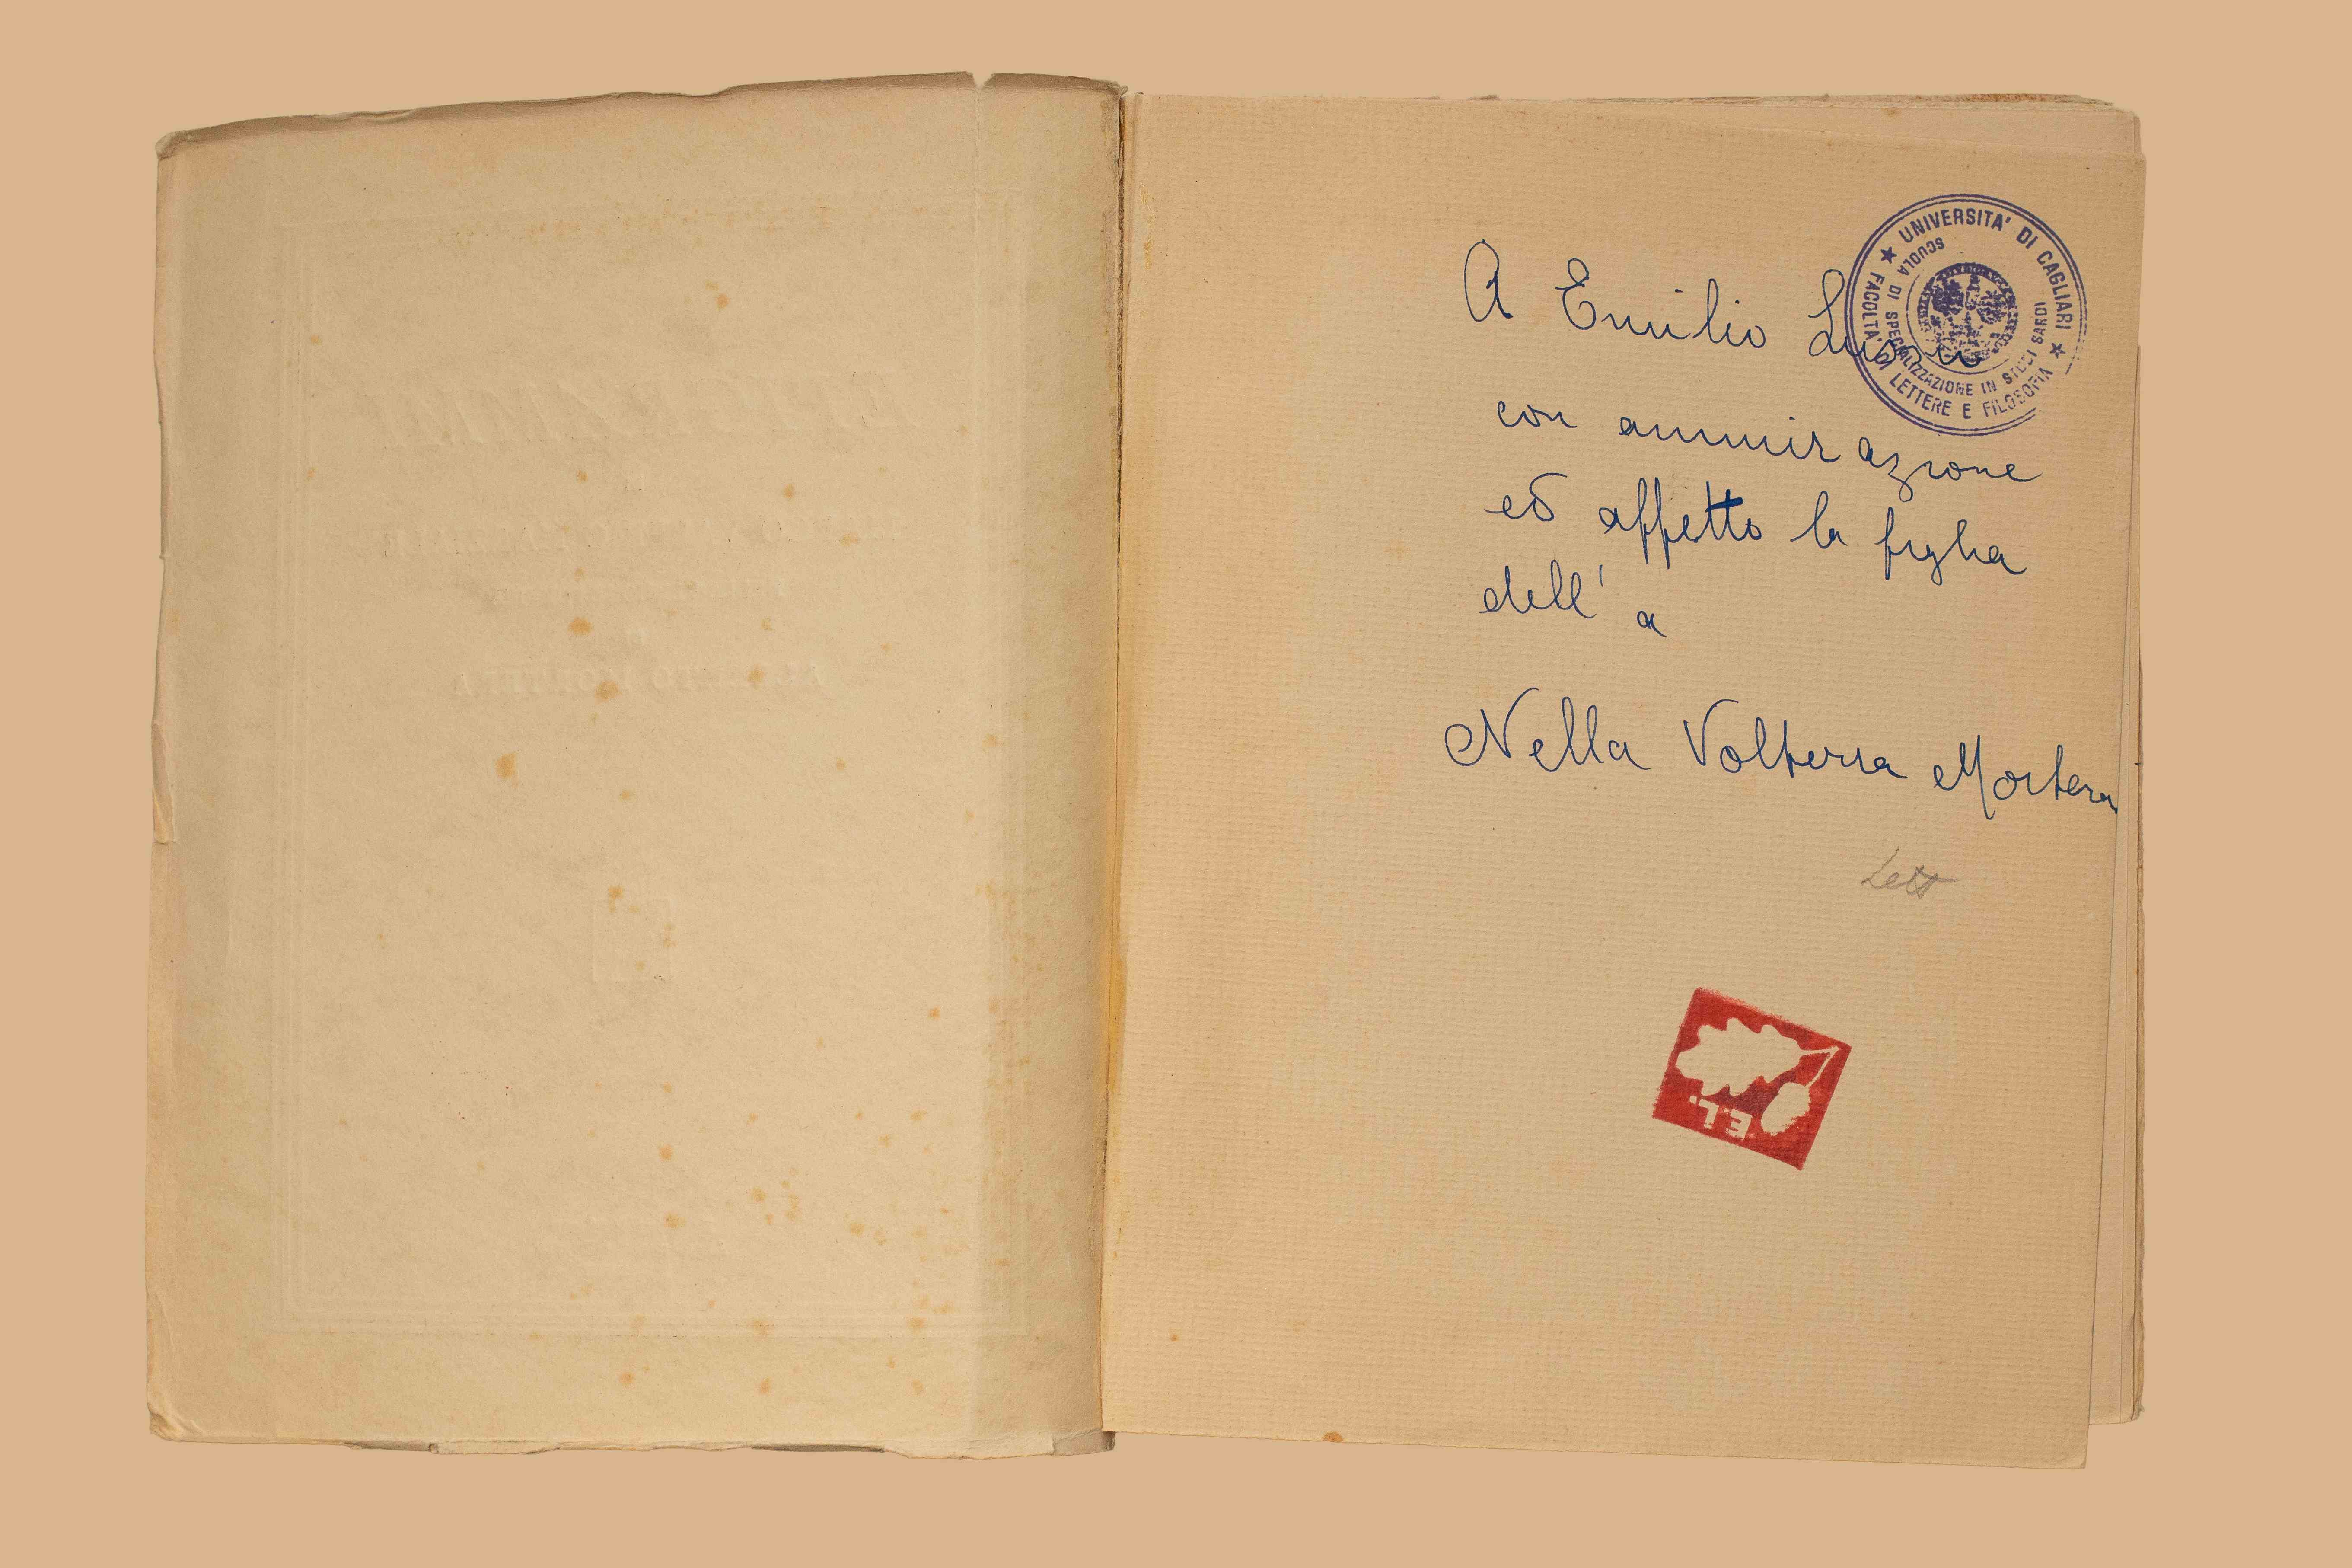 A Emilio Lussu
con ammirazione
ed affetto la figlia
dell' a
Nella Volterra Mortera
Lett
★ UNIVERSITA' DI CAGLIARI ★
FACOLTA' DI LETTERE E FILOSOFIA
SCUOLA DI SPECIALIZZAZIONE IN STUDI SARDI
E.L.